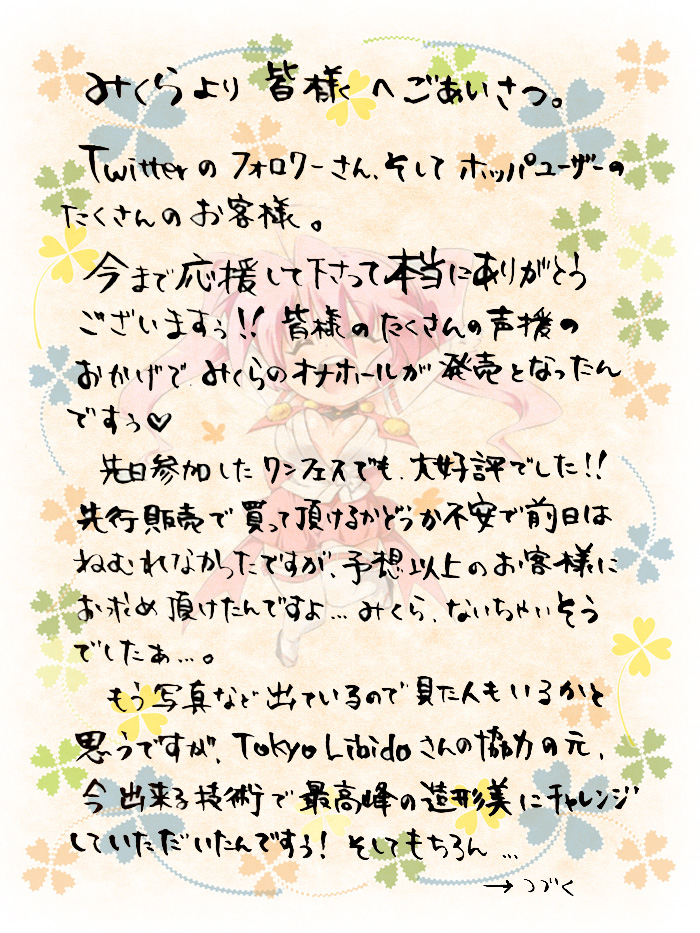 みくらより 皆様へごあいさつ。
Twitterの フォロワーさん、そして ホッパユーザーの
たくさんの お客様。
今まで応援して下さって本当にありがとう
ございますぅ!! 皆様のたくさんの声援の
おかげで、みくらのオナホールが 発売となったん
ですぅ♥
先日参加した ワンフェスでも、大好評でした!!
先行販売で買って頂けるかどうか不安で前日は
ねむれなかったですが、予想以上のお客様に
お求め頂けたんですよ… みくら、ないちゃいそう
でしたぁ…。
もう写真など出ているので見た人もいるかと
思うですが、Tokyo Libidoさんの協力の元、
今出来る技術で最高峰の造形美にチャレンジ
していただいたんですぅ! そしてもちろん…
→つづく